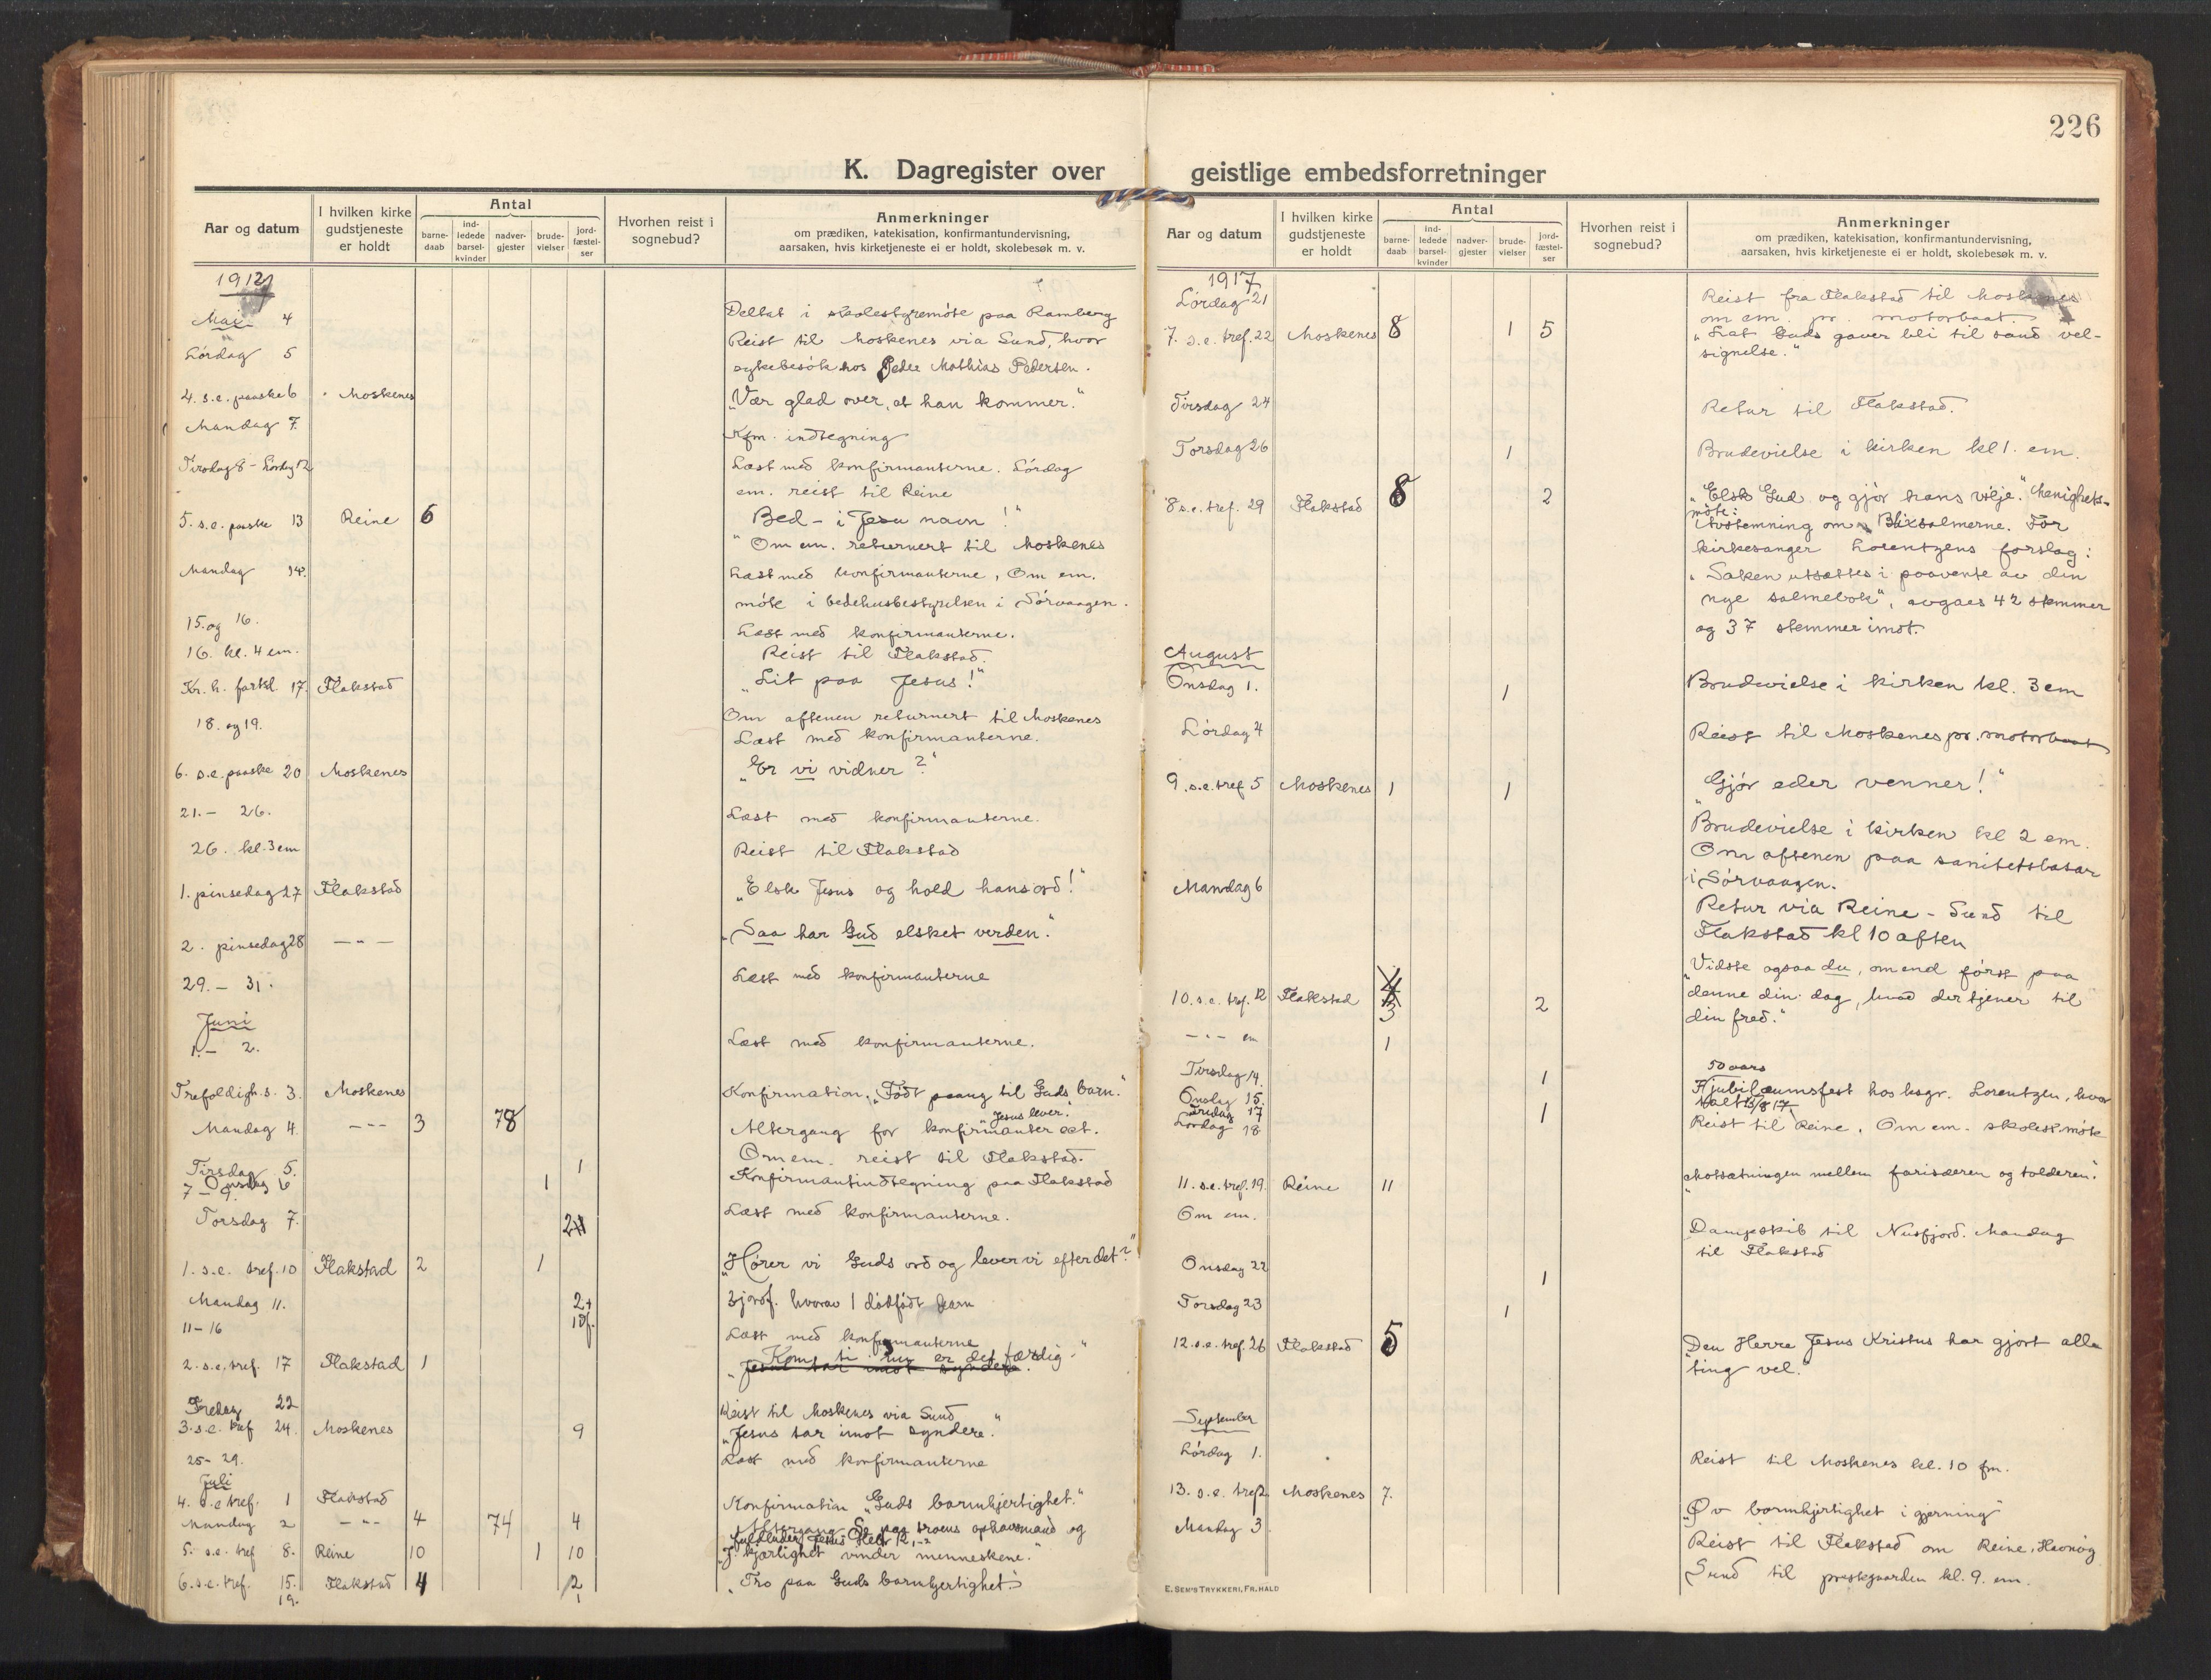 226
K. Dagregister over geistlige embedsforretninger
Aar og datum
I hvilken kirke gudstjeneste er holdt
Antal
barne-daab
ind-ledede barsel-kvinder
nadver-gjester
brude-vielser
jord-fæstel-ser
Hvorhen reist i sognebud?
Anmerkninger
om prædiken, katekisation, konfirmantundervisning,
aarsaken, hvis kirketjeneste ei er holdt, skolebesøk m. v.
1917
Mai 4 Deltat i skolestyremöte paa Ramberg
Lördag 5 Reist til Moskenes via Sund, hvor
sykebesök hos Peder Mathias Pedersen.
4. s.e. paaske 6 Moskenes „Vær glad over, at han kommer."
Mandag 7. Kfm. indtegning
Tirsdag 8 - Lördag 12 Læst med konfirmanterne. Lördag
em. reist til Reine
5. s.e. paaske 13 Reine 6 „Bed - i Jesu navn!"
Om em. returnert til Moskenes
Mandag 14. Læst med konfirmanterne, Om em.
möte i bedehusbestyrelsen i Sörvaagen.
15. og 16. Læst med konfirmanterne.
16. kl. 4 em. Reist til Flakstad.
Kr. h. fartsd. 17. Flakstad „Lit paa Jesus!"
Om aftenen returnert til Moskenes
18. og 19. Læst med konfirmanterne.
6. s.e. paaske 20 Moskenes „Er vi vidner?"
21. - 26. Læst med konfirmanterne.
26. kl. 3 em Reist til Flakstad
1. pinsedag 27 Flakstad „Elsk Jesus og hold hans ord!"
2. pinsedag 28 — „ — „Saa har Gud elsket verden."
29. - 31. Læst med konfirmanterne
Juni
1. - 2. Læst med konfirmanterne.
Trefoldigh. s. 3. Moskenes Konfirmation. „Født paany til Guds barn."
Mandag 4. — „ — 3 78 Altergang for konfirmanter ect. „Jesus lever."
Om em. reist til Flakstad.
Tirsdag 5. 1
Onsdag 6 1 Konfirmantindtegning paa Flakstad
7 - 9. Læst med konfirmanterne.
Torsdag 7. 2
1. s.e. tref. 10 Flakstad 2 1 „Hører vi Guds ord og lever vi efter det?"
Mandag 11. 2+ 1 df. 3 jordf. hvorav 1 dödfödt barn
11 - 16 Læst med konfirmanterne
2. s.e. tref. 17 Flakstad 1 „Kom, ti nu er det færdig."
Jesus tar imot syndere.
Fredag 22 Reist til Moskenes via Sund
3. s.e. tref 24. Moskenes 9 „Jesus tar imot syndere."
25 - 29. Læst med konfirmanterne
Juli
4. s.e. tref. 1 Flakstad Konfirmation „Guds barmhjertighet."
Mandag 2 — „ — 4 74 4 Altergang. Se paa troens ophavsmand og
fuldender Jesus Hebr 12, 1-2
5. s.e. tref 8. Reine 10 1 10 „I kjærlighet vinder menneskene."
6. s.e. tref. 15. Flakstad 4 2 „Tro paa Guds barmhjertighet."
19. 1
Aar og datum
I hvilken kirke gudstjeneste er holdt
Antal
barne-daab
ind-ledede barsel-kvinder
nadver-gjester
brude-vielser
jord-fæstel-ser
Hvorhen reist i sognebud?
Anmerkninger
om prædiken, katekisation, konfirmantundervisning,
aarsaken, hvis kirketjeneste ei er holdt, skolebesøk m. v.
1917
Lördag 21 Reist fra Flakstad til Moskenes
om em. pr. motorbaat.
7. s.e. tref. 22 Moskenes 8 1 5 „Lat Guds gaver bli til sand vel-
signelse."
Tirsdag 24 Retur til Flakstad.
Torsdag 26 1 Brudevielse i kirken kl 1. em.
8 s.e. tref. 29 Flakstad 8 2 „Elsk Gud og gjör hans vilje." Menighets-
möte:
Avstemning om Blixsalmerne. For
kirkesanger Lorentzens forslag:
„Saken utsættes i paavente av den
nye salmebok", avgaes 42 stemmer
og 37 stemmer imot.
August
Onsdag 1. 1 Brudevielse i kirken kl. 3 em
Lördag 4 Reist til Moskenes pr. motorbaat
9. s.e. tref 5 Moskenes 1 1 „Gjör eder venner!"
Brudevielse i kirken kl 2 em.
Om aftenen paa sanitetsbasar
i Sörvaagen.
Mandag 6 Retur via Reine - Sund til
Flakstad kl 10 aften
10. s.e. tref. 12 Flakstad 3 2 „Vidste ogsaa du, om end först paa
denne din dag, hvad der tjener til
din fred."
— „ — em 1
Tirsdag 14. 1
50 aars
Onsdag 15. jubilæumsfest hos ksgr. Lorentzen, hvor
Fredag 17 1
Lördag 18 Reist til Reine. Om em. skolest.möte
11. s.e. tref. 19. Reine 11 „Motsætningen mellem farisæeren og tolderen."
Om em. Dampskib til Nusfjord. Mandag
til Flakstad
Onsdag 22 1
Torsdag 23 1
12. s.e. tref. 26 Flakstad 5 „Den Herre Jesus Kristus har gjort alle
ting vel."
September
Lördag 1. Reist til Moskenes kl. 10 fm.
13. s.e. tref 2 Moskenes 7. „Øv barmhjertighet i gjerning"
Mandag 3 Reist til Flakstad om Reine, Havnög
Sund til prestgaarden kl. 9. em.
E. SEM'S TRYKKERI, FR.HALD